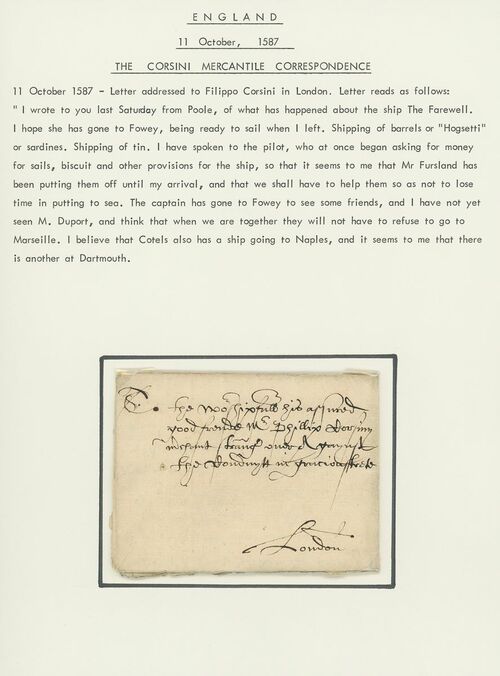 ENGLAND
11 October, 1587
THE CORSINI MERCANTILE CORRESPONDENCE
11 October 1587 - Letter addressed to Filippo Corsini in London. Letter reads as follows:
" I wrote to you last Saturday from Poole, of what has happened about the ship The Farewell.
I hope she has gone to Fowey, being ready to sail when I left. Shipping of barrels or "Hogsetti"
or sardines. Shipping of tin. I have spoken to the pilot, who at once began asking for money
for sails, biscuit and other provisions for the ship, so that it seems to me that Mr Fursland has
been putting them off until my arrival, and that we shall have to help them so as not to lose
time in putting to sea. The captain has gone to Fowey to see some friends, and I have not yet
seen M. Duport, and think that when we are together they will not have to refuse to go to
Marseille. I believe that Cotels also has a ship going to Naples, and it seems to me that there
is another at Dartmouth.
To the worshipfull his assured
good frende Mr Phillip Corsiny
over Against
the in
London